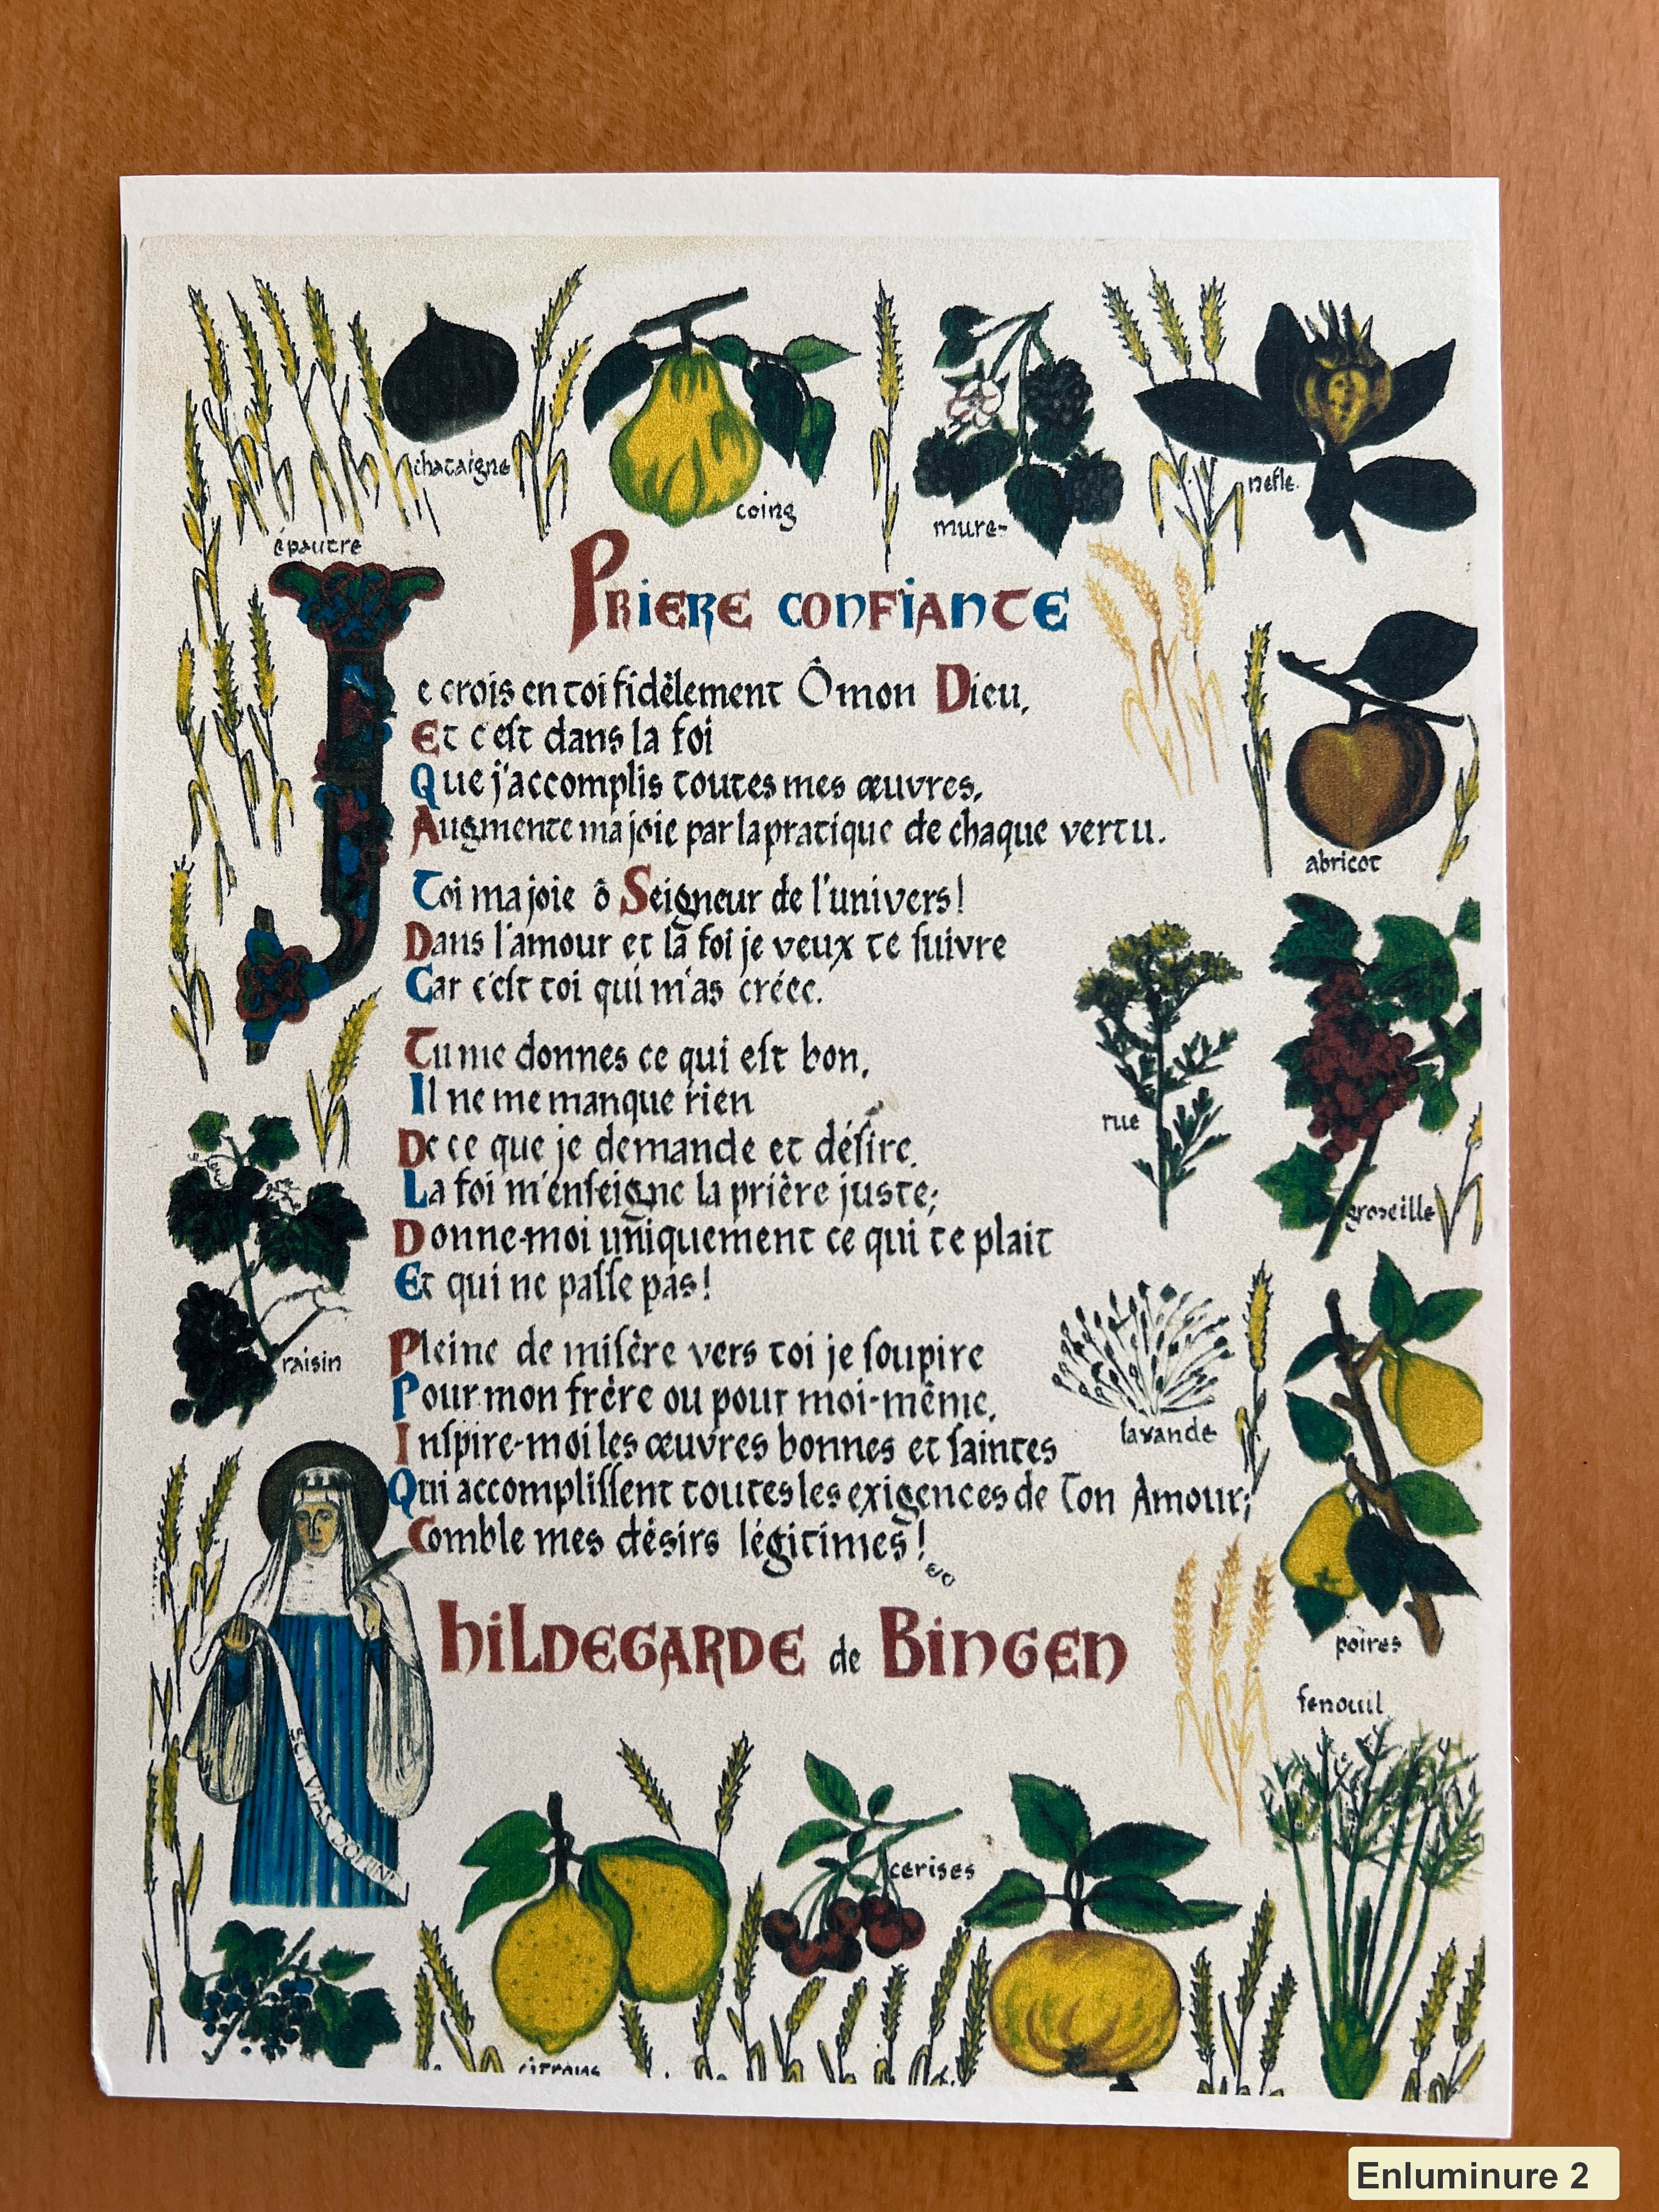 chataigne
coing
mure-
nefle.
épautre
PRIERE CONFIANTE
Je crois en toi fidèlement Ô mon Dieu,
Et c'eſt dans la foi
Que j'accomplis toutes mes œuvres.
Augmente ma joie par la pratique de chaque vertu.
abricot
Toi ma joie ô Seigneur de l'univers!
Dans l'amour et la foi je veux te ſuivre
Car c'eſt toi qui m'as créée.
Tu me donnes ce qui eſt bon,
Il ne me manque rien
rue
De ce que je demande et déſire.
La foi m'enſeigne la prière juste;
groseille
Donne-moi uniquement ce qui te plait
Et qui ne paſſe pas!
raisin
Pleine de miſère vers toi je ſoupire
Pour mon frère ou pour moi-même,
lavande
Inſpire-moi les œuvres bonnes et ſaintes
Qui accompliſſent toutes les exigences de Ton Amour;
Comble mes désirs légitimes!
poires
HILDEGARDE de BINGEN
fenouil
VIAS DOMINI
cerises
citrons
Enluminure 2